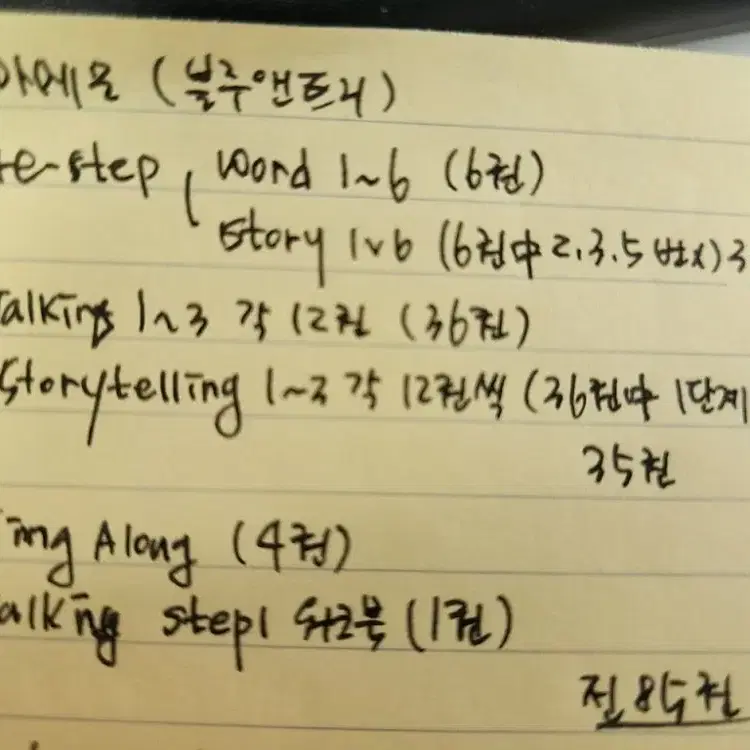 아메모 (블루앤트리)
re-step, Word 1~6 (6권)
Story 1~6 (6권中 2.3.5 번x) 3
alking 1~3 각 12권 (36권)
Storytelling 1~3 각 12권씩 (36권中 1단계
35권
ing Along (4권)
alking step1 워크북 (1권)
전 85권